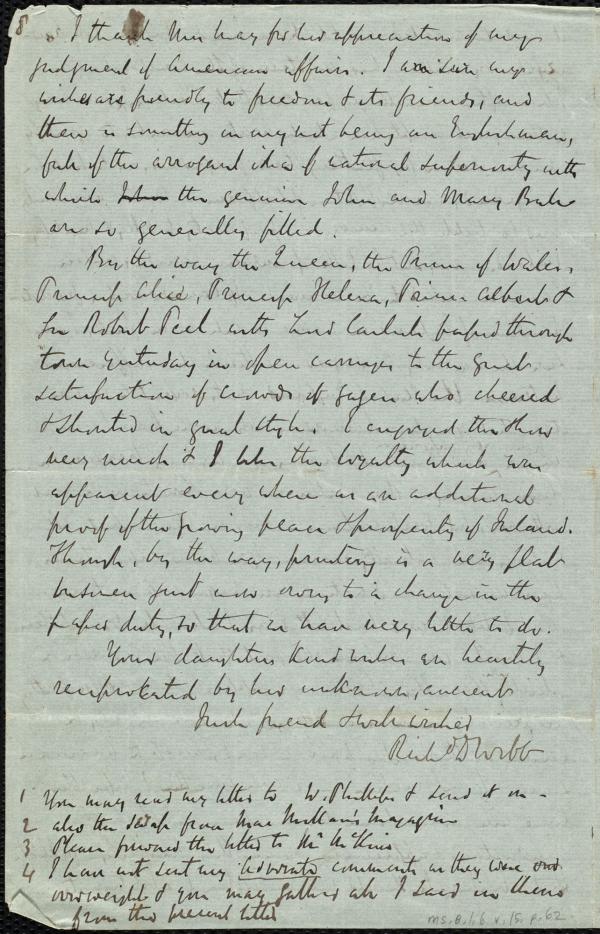 8
I thank Miss May for her appreciation of my
judgment of American affairs. I am sure my
wishes are friendly to freedom & its friends, and
there is something in my not being an Englishman,
full of the arrogant idea of national superiority with
which the genuine John and Mary Bulls
are so generally filled.
By the way the Queen, the Prince of Wales,
Princess Alice, Princess Helena, Prince Albert &
Sir Robert Peel with Lord Carlisle passed through
town yesterday in open carriages to the great
satisfaction of crowds of gazers who cheered
& shouted in great style. I enjoyed the show
very much & I take the loyalty which was
apparent every where as an additional
proof of the growing peace & prosperity of Ireland.
Though, by the way, printing is a very flat
business just now owing to a change in the
paper duty, so that we have very little to do.
Your daughters kind wishes are heartily
reciprocated by her unknown, ancient
Irish friend & well wisher
Richd D Webb
1 You may send my letter to W. Phillips & send it on -
2 also the from MacMillan's Magazine
3 Please forward the letter to Mr McKim
4 I have not sent my Advocate comments as they were
overweight & you may gather all I said in them
from the present letter
Ms. B. 1. 6 v. 15, p. 62